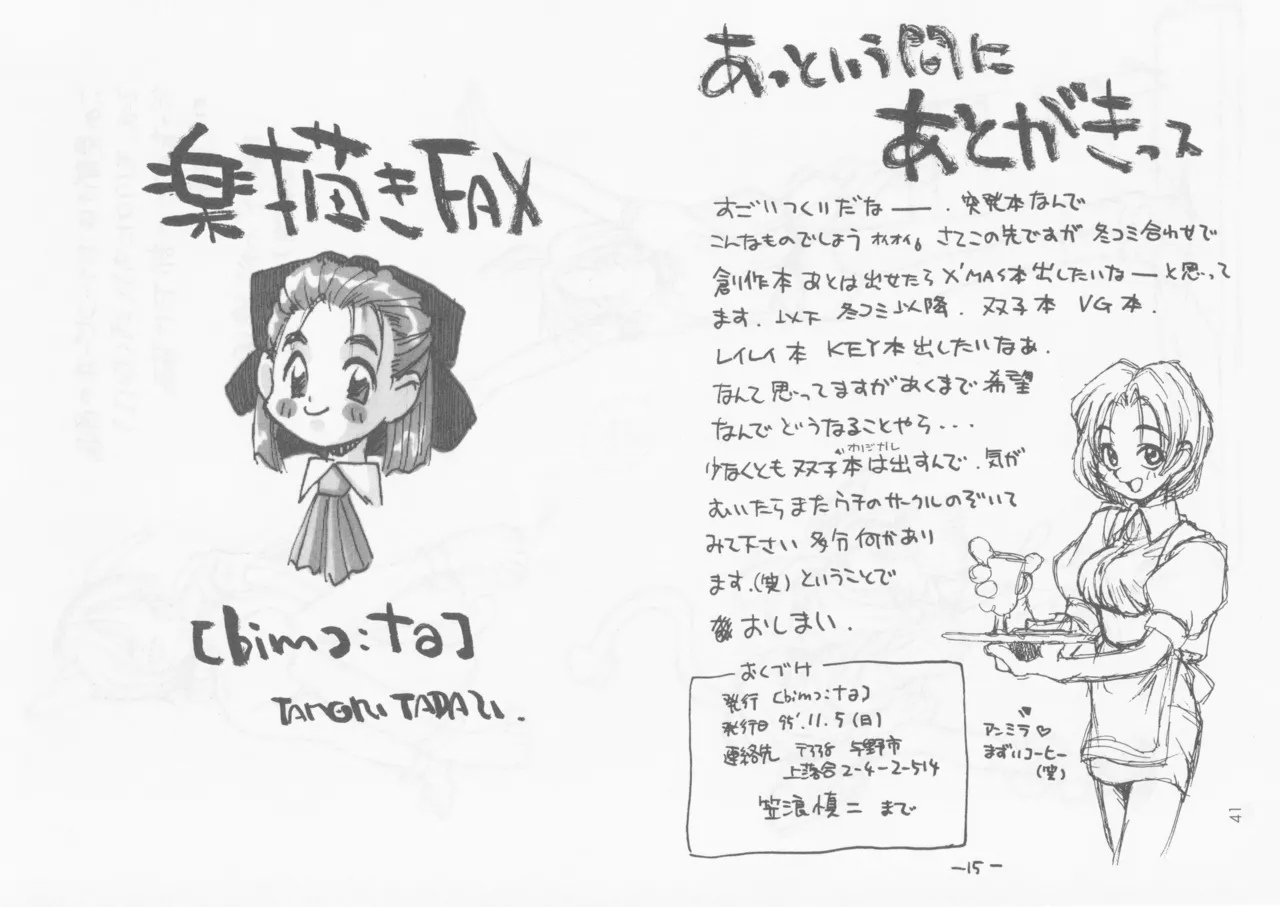 楽描きFAX
[bimコ:ta]
あっという間に
あとがきっス
すごいつくりだなー. 突発本なんで
こんなものでしょう オイオイ。さてこの先ですが 冬コミ合わせで
創作本 あとは出せたら X'MAS本出したいなーと思って
ます. 以下 冬コミ以降. 双子本 VG本.
レイレイ本 KEY本出したいなぁ.
なんて思ってますがあくまで希望
なんで どうなることやら...
オリジナル
少なくとも双子本は出すんで. 気が
むいたらまたウチのサークルのぞいて
みて下さい 多分何かあり
ます.(笑) ということで
おしまい.
おくづけ
発行 [bimコ:ta]
発行日 95'.11.5(日)
連絡先 〒338 与野市
上落合2-4-2-514
笠浪慎二 まで
アンミラ♡
まずいコーヒー
(笑)
-15-
41